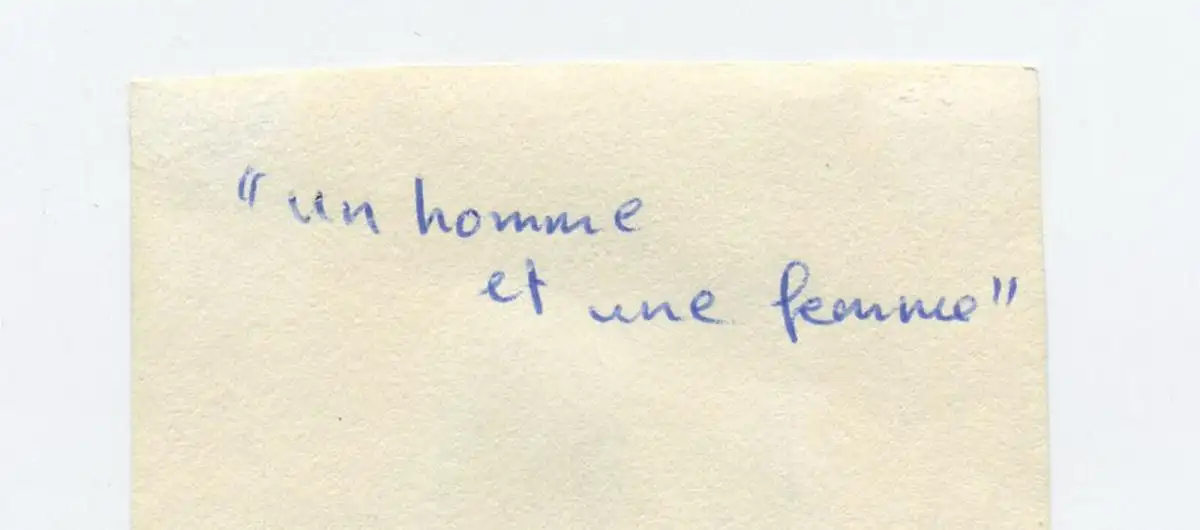 "un homme
et une femme"